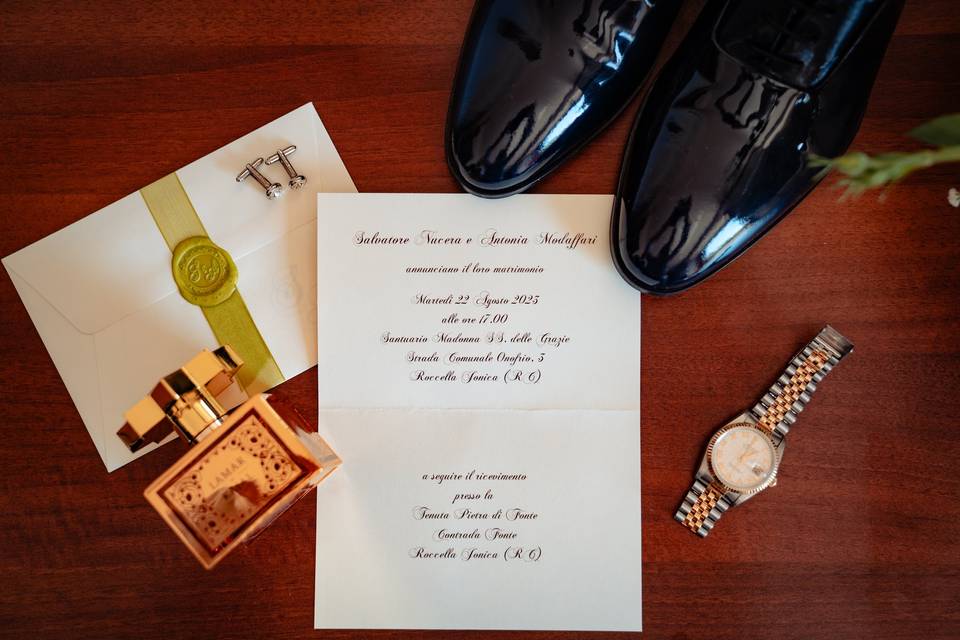 Salvatore Nucera e Antonia Modaffari
annunciano il loro matrimonio
Martedì 22 Agosto 2023
alle ore 17.00
Santuario Madonna SS. delle Grazie
Strada Comunale Onofrio, 3
Roccella Jonica (RC)
a seguire il ricevimento
presso la
Tenuta Pietra di Fonte
Contrada Fonte
Roccella Jonica (RC)
LAMAR